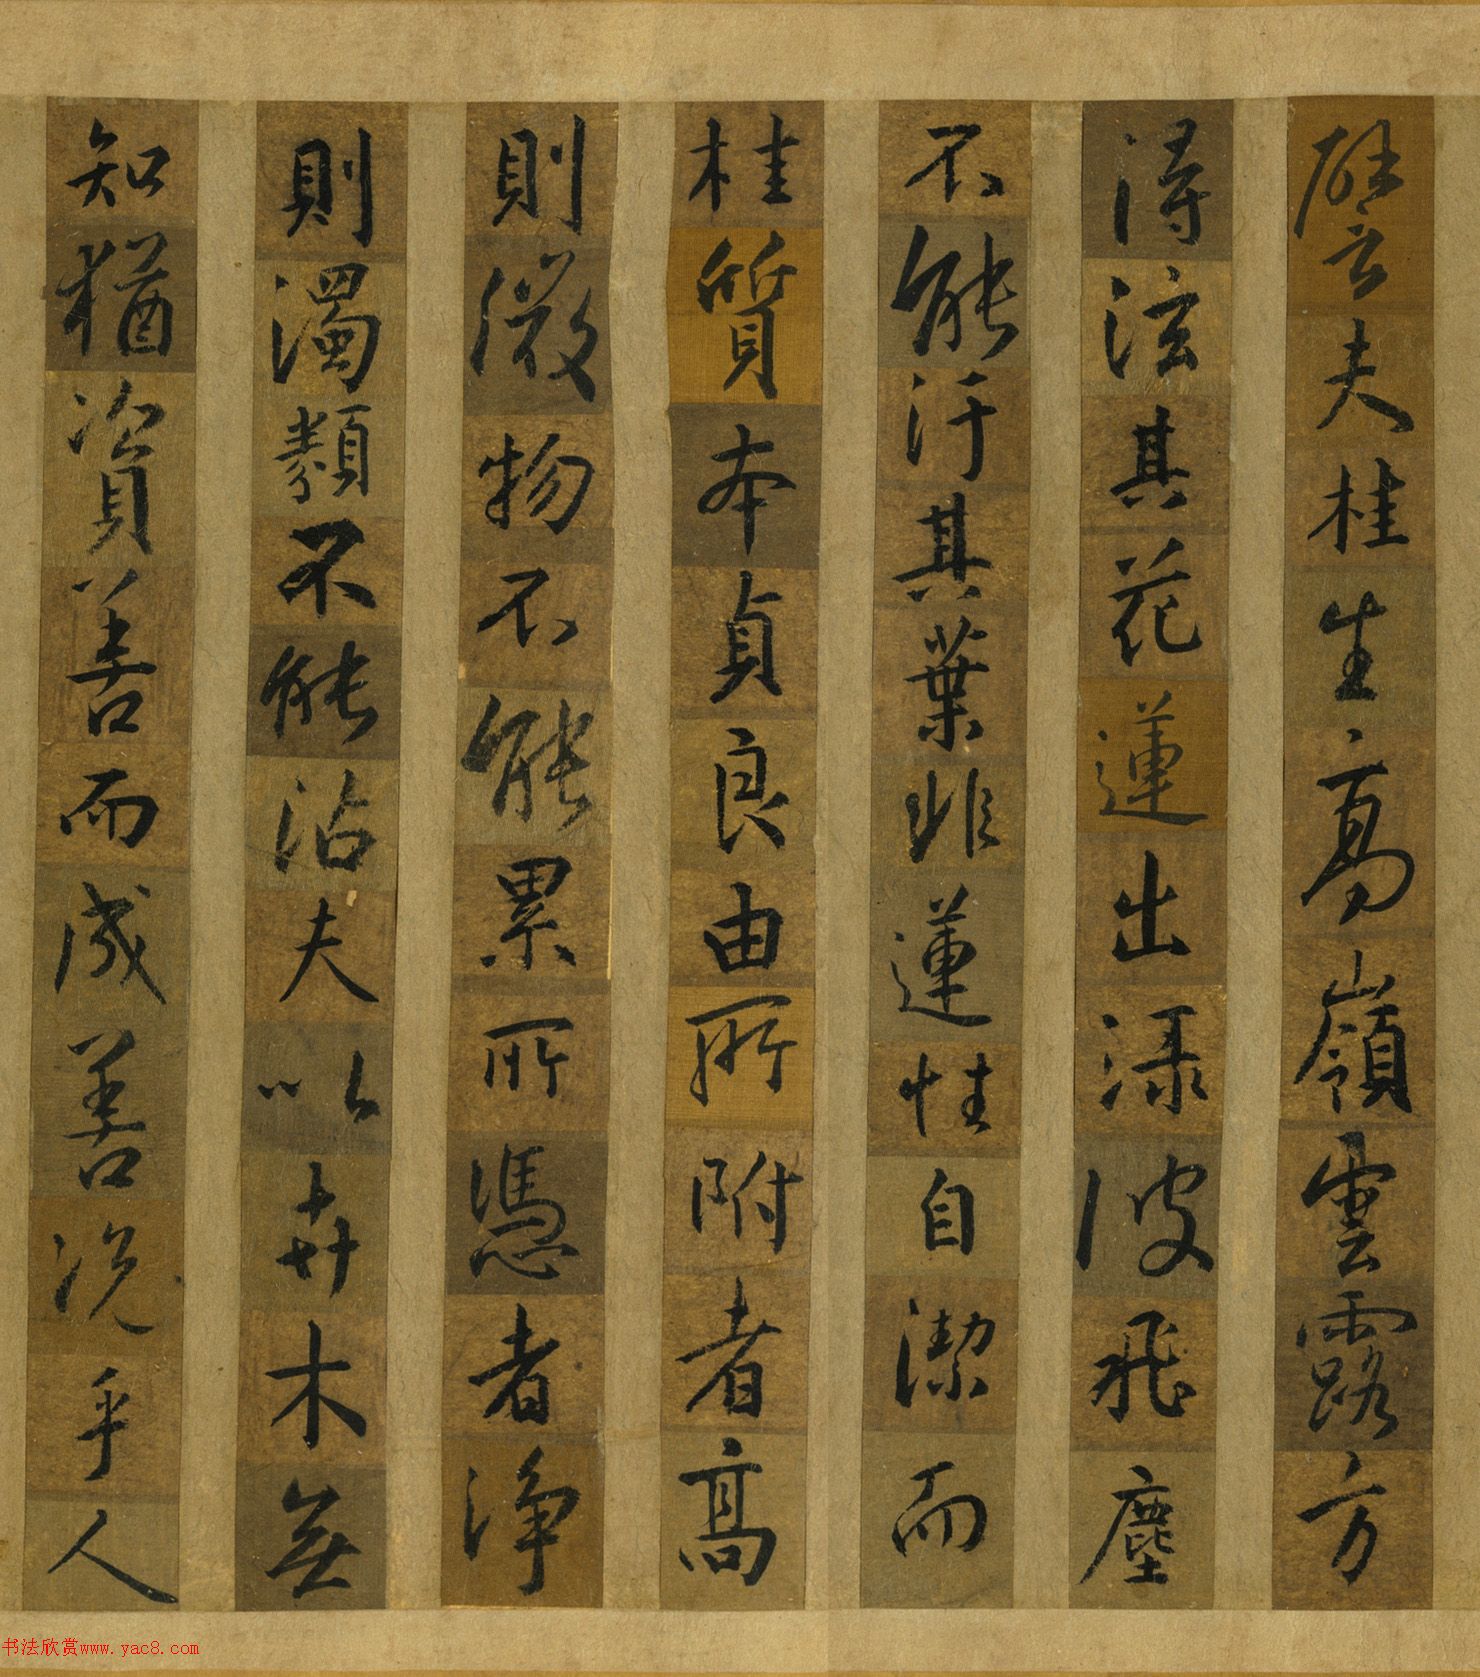 譬夫桂生高嶺雲露方
得泫其花蓮出淥波飛塵
不能汙其葉非蓮性自潔而
桂質本貞良由所附者高
則微物不能累所憑者淨
則濁類不能沾夫以卉木無
知猶資善而成善況乎人
书法欣赏www.yac8.com